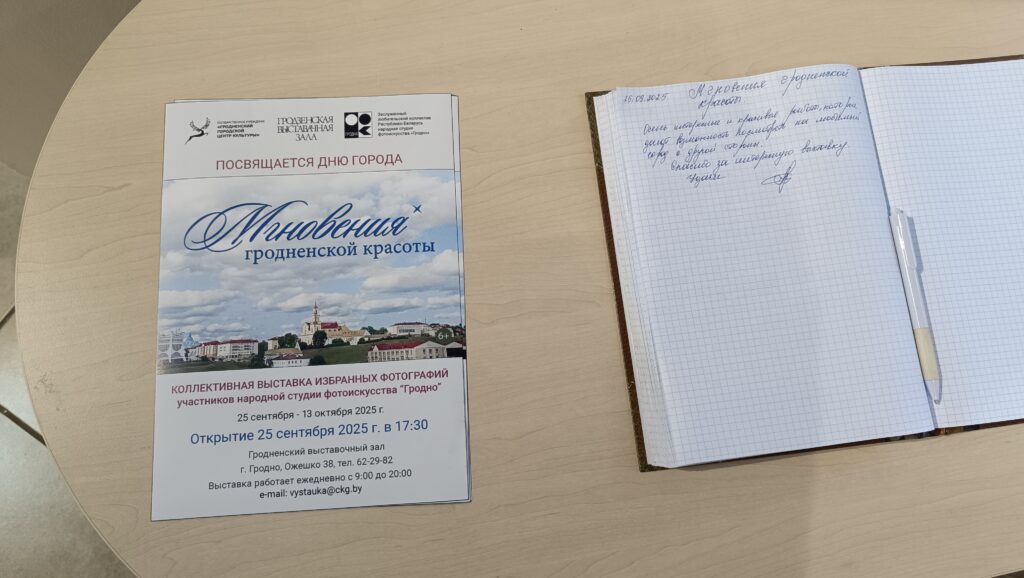 ГОСУДАРСТВЕННОЕ УЧРЕЖДЕНИЕ
«ГРОДНЕНСКИЙ
ГОРОДСКОЙ
ЦЕНТР КУЛЬТУРЫ»
ГРОДЗЕНСКАЯ
ВЫСТАВАЧНАЯ
ЗАЛА
Заслуженный
любительский коллектив
Республики Беларусь
народная студия
фотоискусства «Гродно»
ПОСВЯЩАЕТСЯ ДНЮ ГОРОДА
Мгновения
гродненской красоты
6+
КОЛЛЕКТИВНАЯ ВЫСТАВКА ИЗБРАННЫХ ФОТОГРАФИЙ
участников народной студии фотоискусства "Гродно"
25 сентября - 13 октября 2025 г.
Открытие 25 сентября 2025 г. в 17:30
Гродненский выставочный зал
г. Гродно, Ожешко 38, тел. 62-29-82
Выставка работает ежедневно с 9:00 до 20:00
e-mail: vystauka@ckg.by
Мгновения гродненской
красоты
Очень интересные и красивые работы, которые
дают возможность посмотреть на любимый
город с другой стороны.
Спасибо за интересную выставку
Удачи